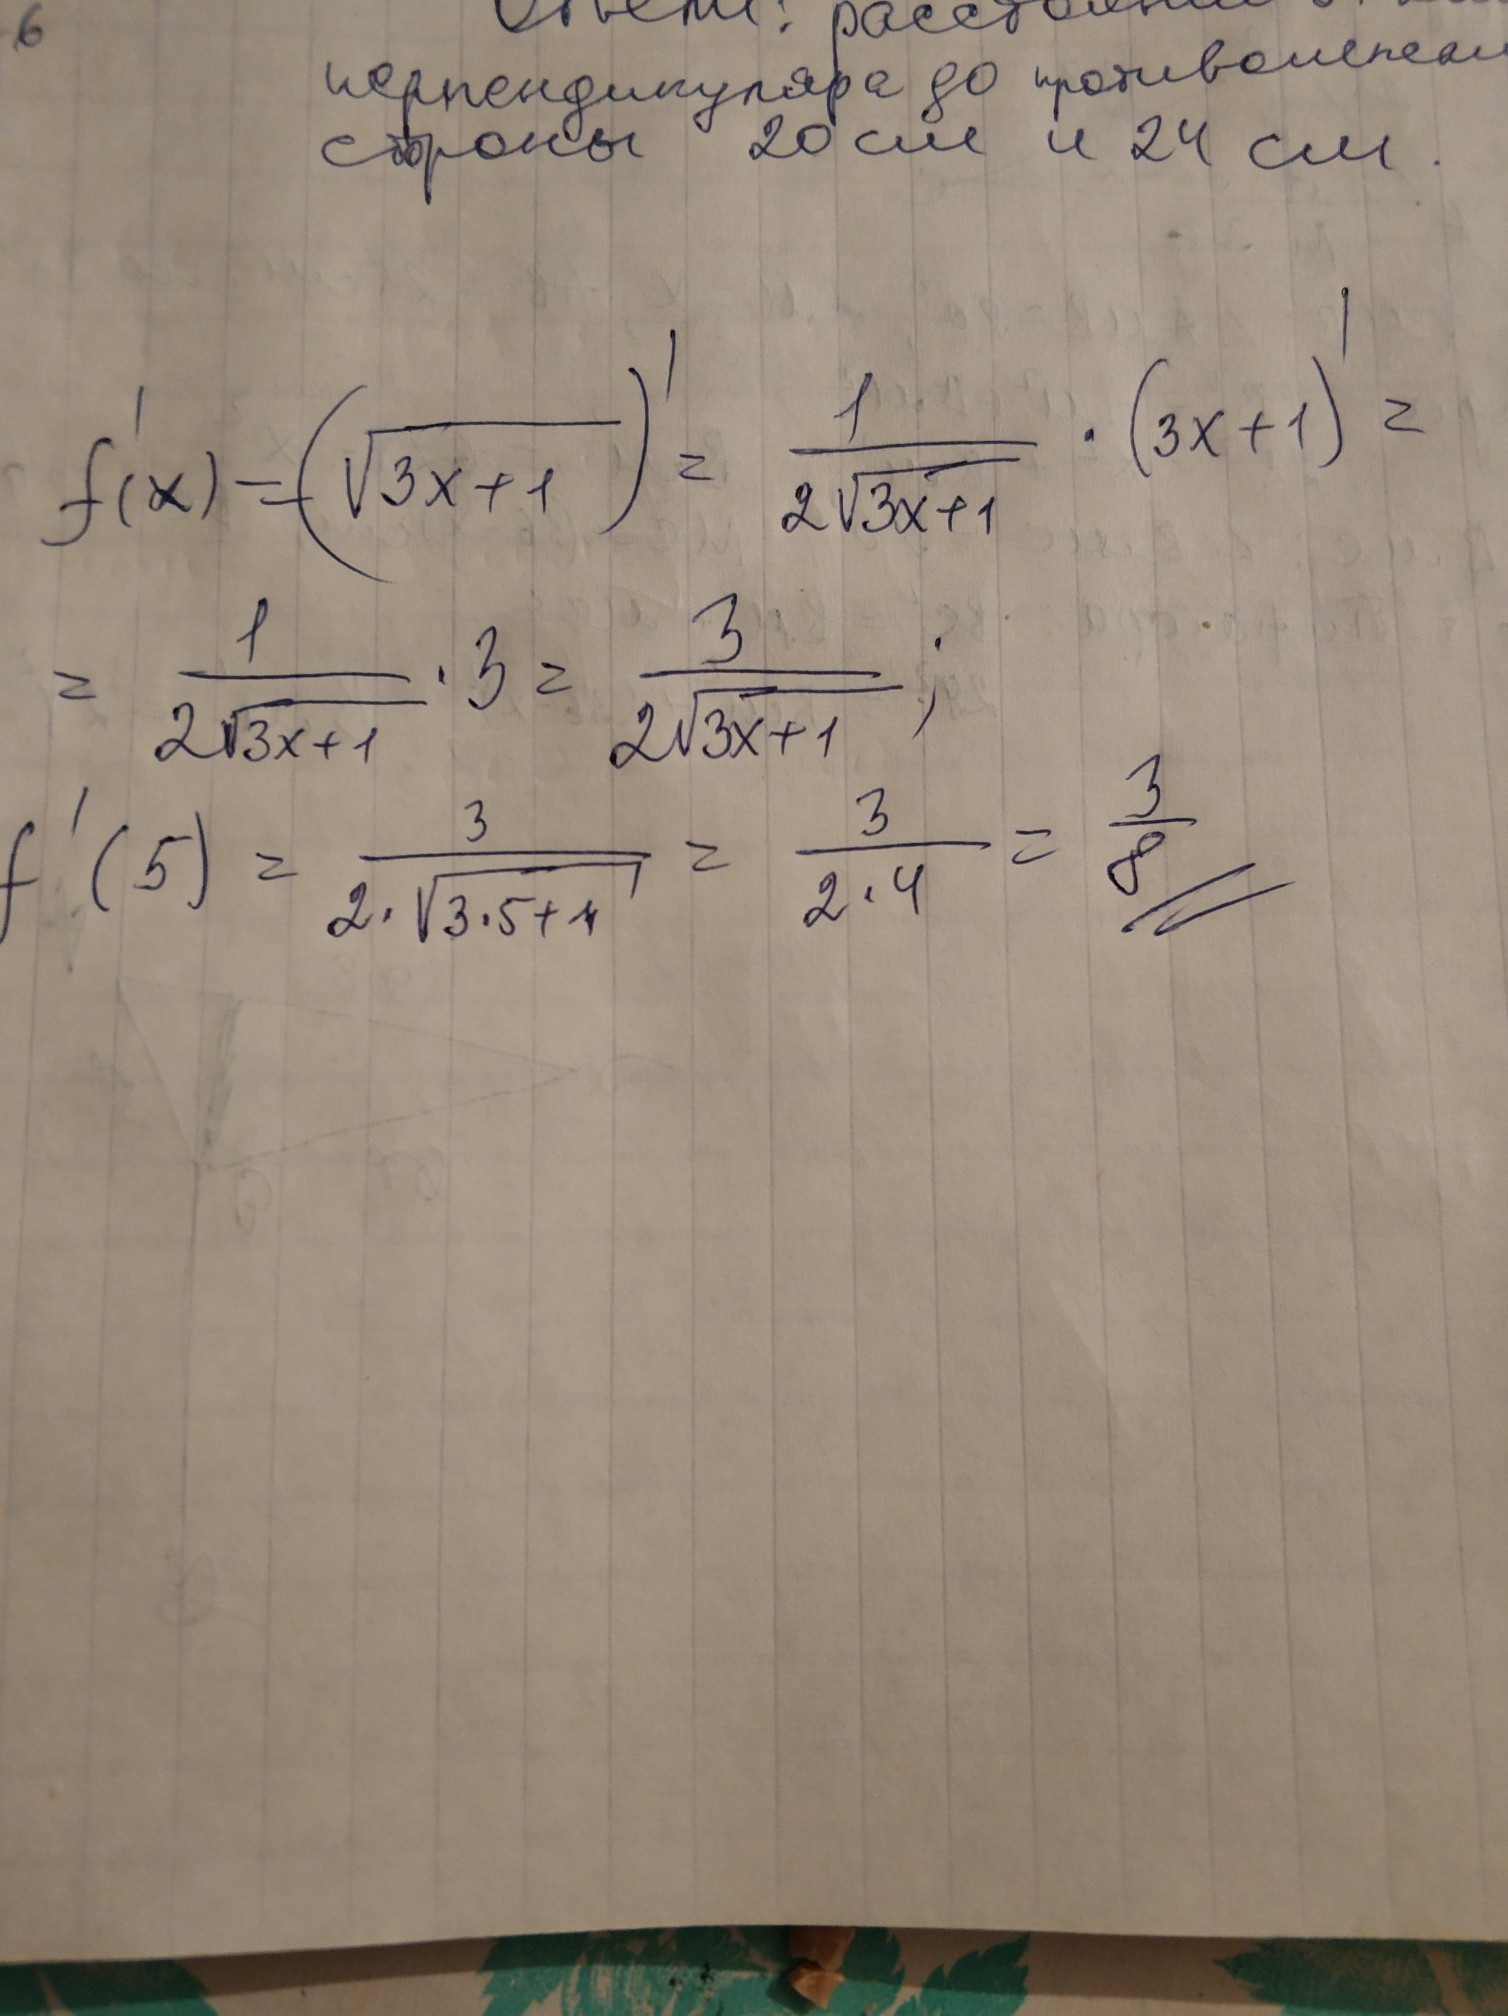 6
Ответ: расстояния от
перпендикуляра до
стороны 20 см и 24 см.
f'(x) = (√3x+1)' = 1/2√3x+1 · (3x+1)' =
= 1/2√3x+1 · 3 = 3/2√3x+1 ;
f'(5) = 3/2·√3·5+1 = 3/2·4 = 3/8